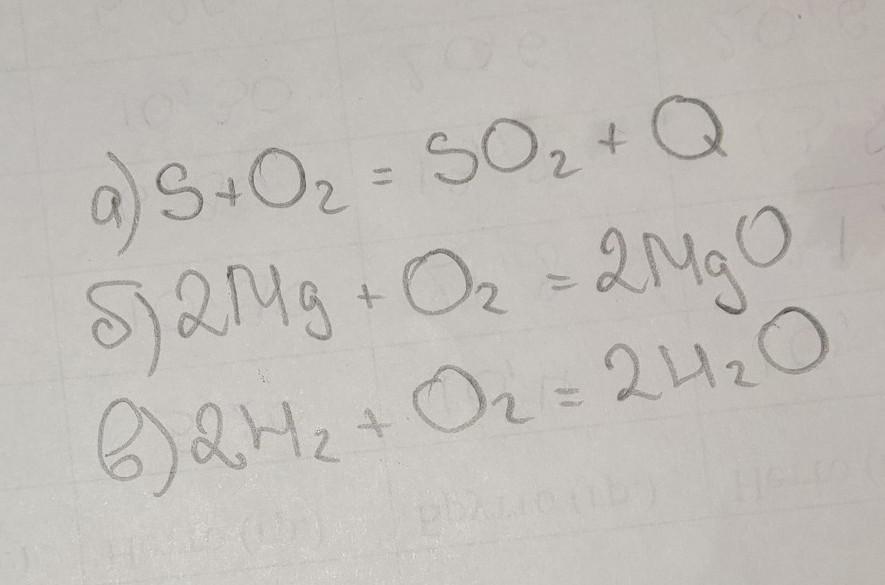 а) S + O₂ = SO₂ + Q
б) 2Mg + O₂ = 2MgO
в) 2H₂ + O₂ = 2H₂O